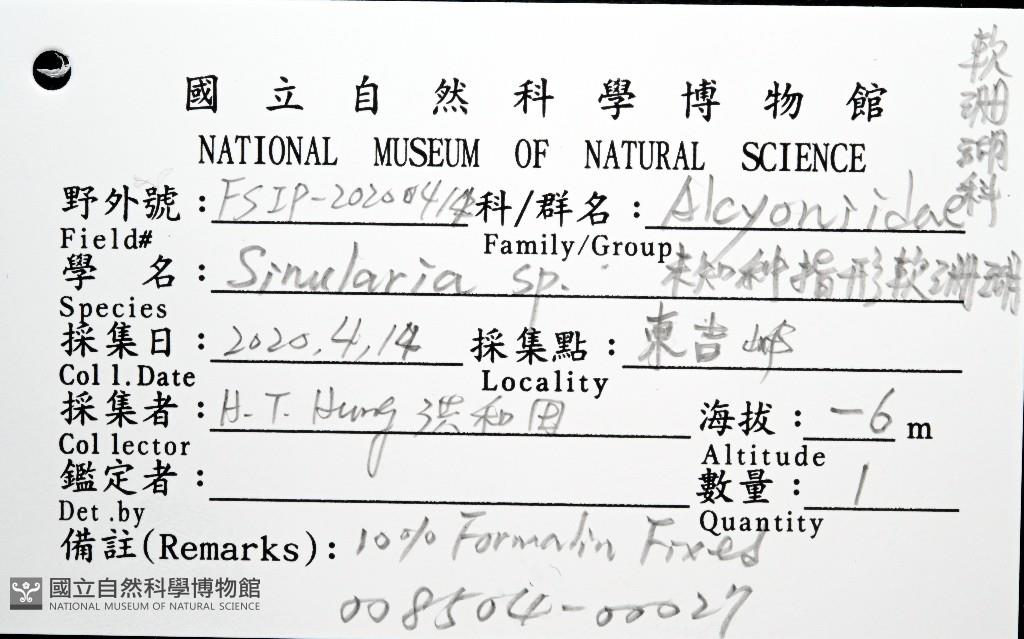 國立自然科學博物館
NATIONAL MUSEUM OF NATURAL SCIENCE
軟珊瑚科
野外號：FSIP-20200414 科/群名：Alcyoniidae
Field# Family/Group
學名：Sinularia sp. 未知种指形軟珊瑚
Species
採集日：2020.4.14 採集點：東吉嶼
Coll.Date Locality
採集者：H.T. Hung 洪和田 海拔：-6 m
Collector Altitude
鑑定者： 數量：1
Det.by Quantity
備註(Remarks)：10% Formalin Fixed
008504-00027
國立自然科學博物館
NATIONAL MUSEUM OF NATURAL SCIENCE